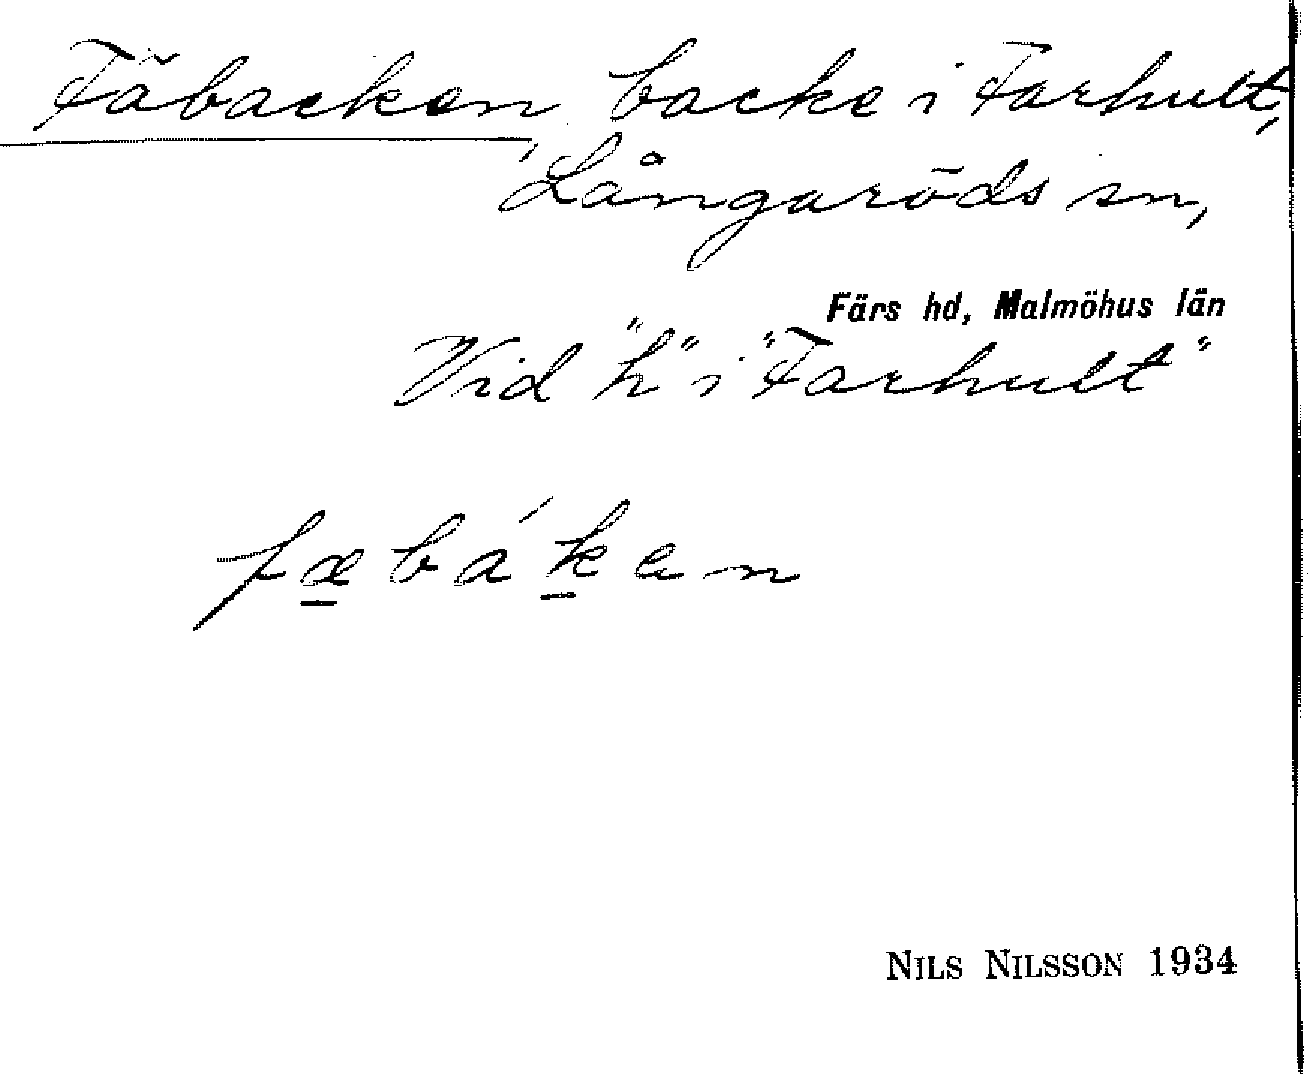 Fäbacken, backe i Farhult,
Långaröds sn,
Färs hd, Malmöhus län
Vid "h" i "Farhult"
fæ̱báḵen
NILS NILSSON 1934